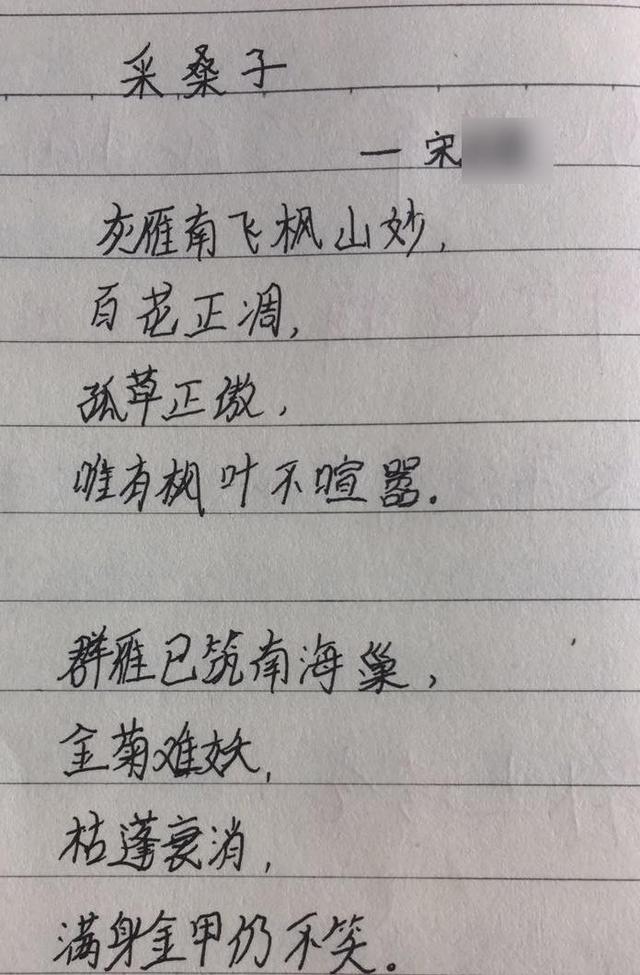 采桑子
— 宋
灰雁南飞枫山妙,
百花正凋,
孤草正傲,
唯有枫叶不喧嚣.
群雁已筑南海巢,
金菊难妖,
枯蓬衰消,
满身金甲仍不笑.